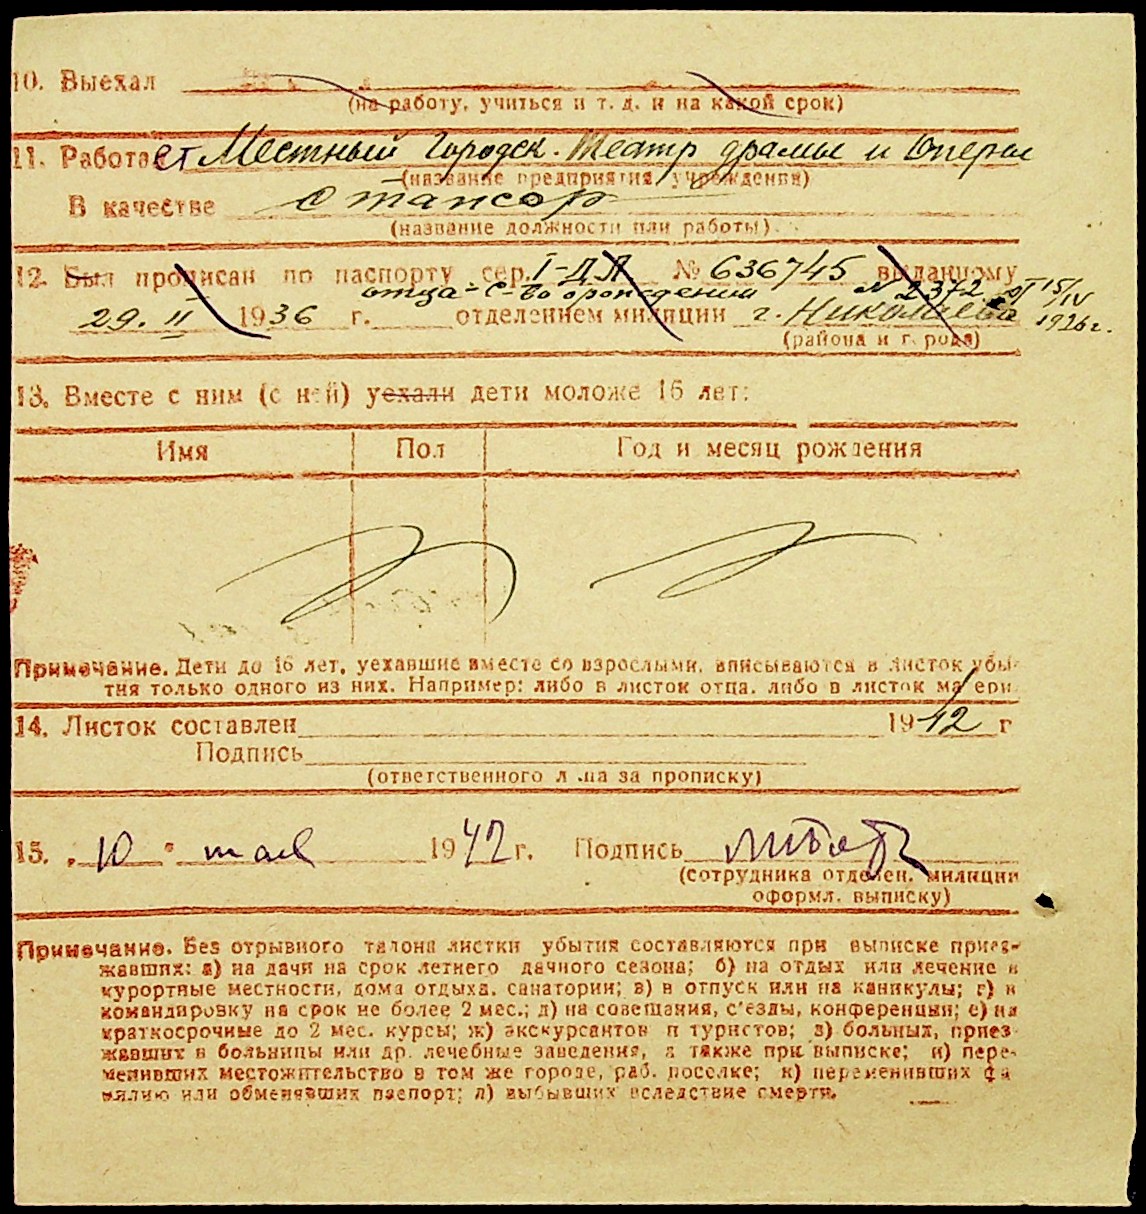 10. Выехал
(на работу, учиться и т. д. и на какой срок)
11. Работает Местный Городск. Театр драмы и Оперы
(название предприятия, учреждения)
В качестве
(название должности или работы)
12. Был прописан по паспорту сер. I-ДЛ № 636745 выданному
отца - С-во о рождении № 2372 от 15/IV
29. II 1936 г. отделением милиции г. Николаева 1926 г.
(района и города)
13. Вместе с ним (с ней) уехали дети моложе 16 лет:
Имя Пол Год и месяц рождения
Примечание. Дети до 16 лет, уехавшие вместе со взрослыми, вписываются в листок убы-
тия только одного из них. Например: либо в листок отца, либо в листок матери.
14. Листок составлен 1942 г
Подпись
(ответственного лица за прописку)
15. „10" мая 1942 г. Подпись
(сотрудника отделен. милиции
оформл. выписку)
Примечание. Без отрывного талона листки убытия составляются при выписке приез-
жавших: а) на дачи на срок летнего дачного сезона; б) на отдых или лечение в
курортные местности, дома отдыха, санатории; в) в отпуск или на каникулы; г) в
командировку на срок не более 2 мес.; д) на совещания, с'езды, конференции; е) на
краткосрочные до 2 мес. курсы; ж) экскурсантов и туристов; з) больных, приез-
жавших в больницы или др. лечебные заведения, а также при выписке; и) пере-
менивших местожительство в том же городе, раб. поселке; к) переменивших фа
милию или обменявших паспорт; л) выбывших вследствие смерти.